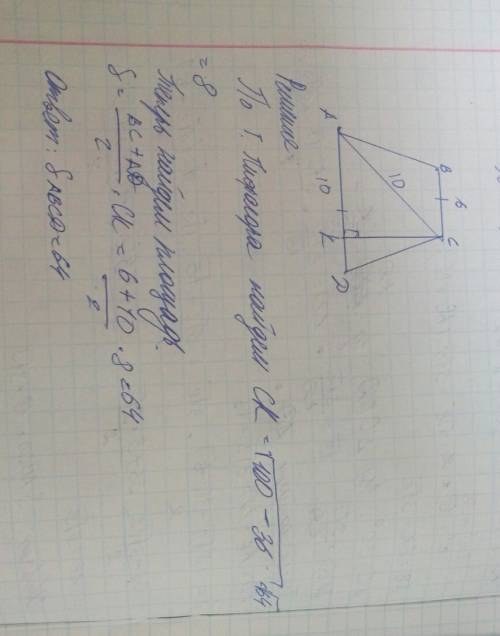 B 6 C
10
A 10 K D
Решение:
По т. Пифагора найдем CK = √100 - 36 = √64
= 8
Теперь найдем площадь.
S = BC + AD / 2 · CK = 6 + 10 / 2 · 8 = 64
Ответ: SABCD = 64